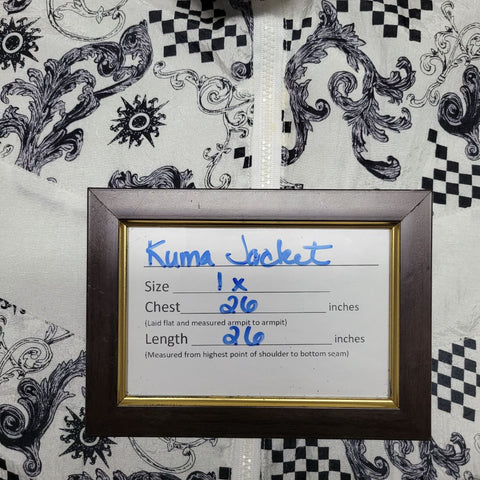 Kuma Jacket
Size 1x
Chest 26 inches
(Laid flat and measured armpit to armpit)
Length 26 inches
(Measured from highest point of shoulder to bottom seam)